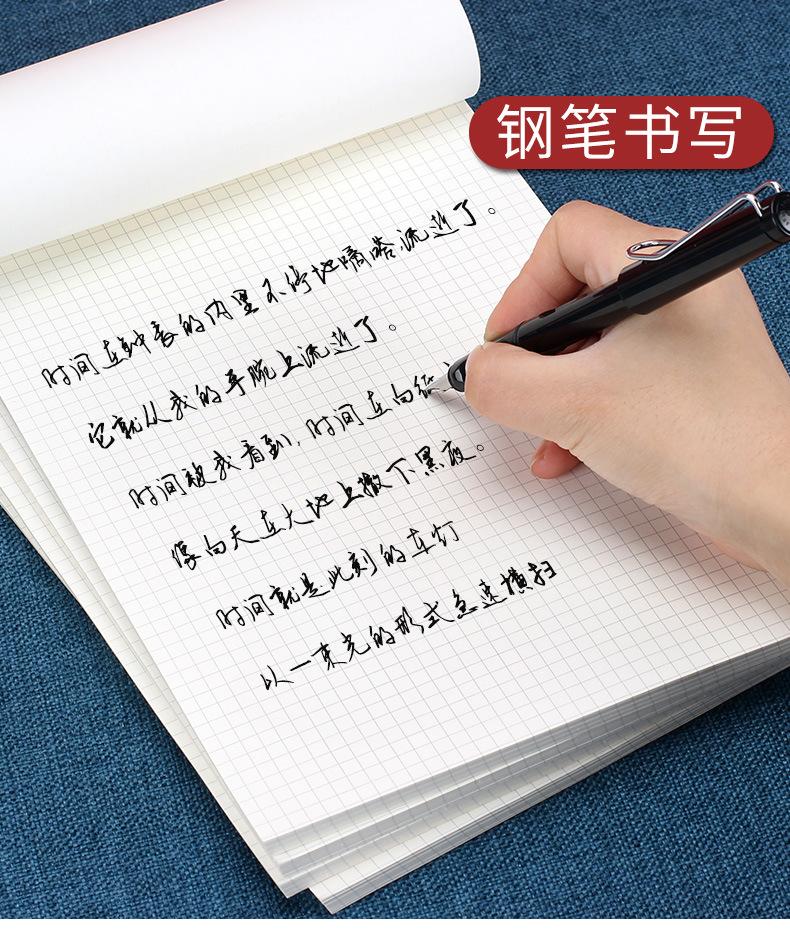 钢笔书写
时间在钟表的内里不停地嘀嗒流逝了。
它就从我的手腕上流逝了。
时间被我看到，时间在向
像向天在大地上撒下黑夜。
时间就是此刻的车灯
以一束光的形式急速横扫